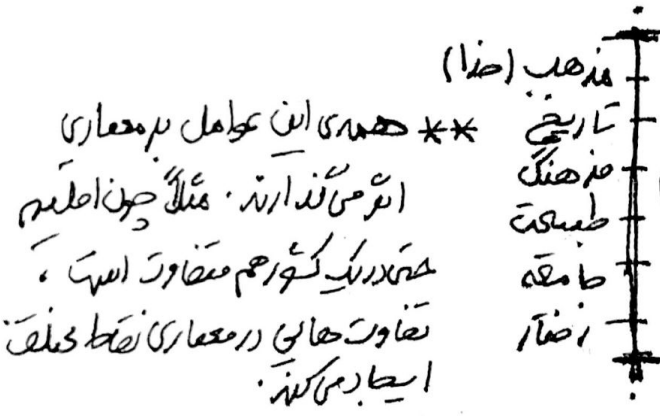 مذهب (خدا)
تاریخ
فرهنگ
طبیعت
جامعه
رفتار
** همه‌ی این عوامل بر معماری
اثر می‌گذارند. مثلاً چون اقلیم
حتی در یک کشور هم متفاوت است،
تفاوت‌هایی در معماری نقاط مختلف
ایجاد می‌کند.